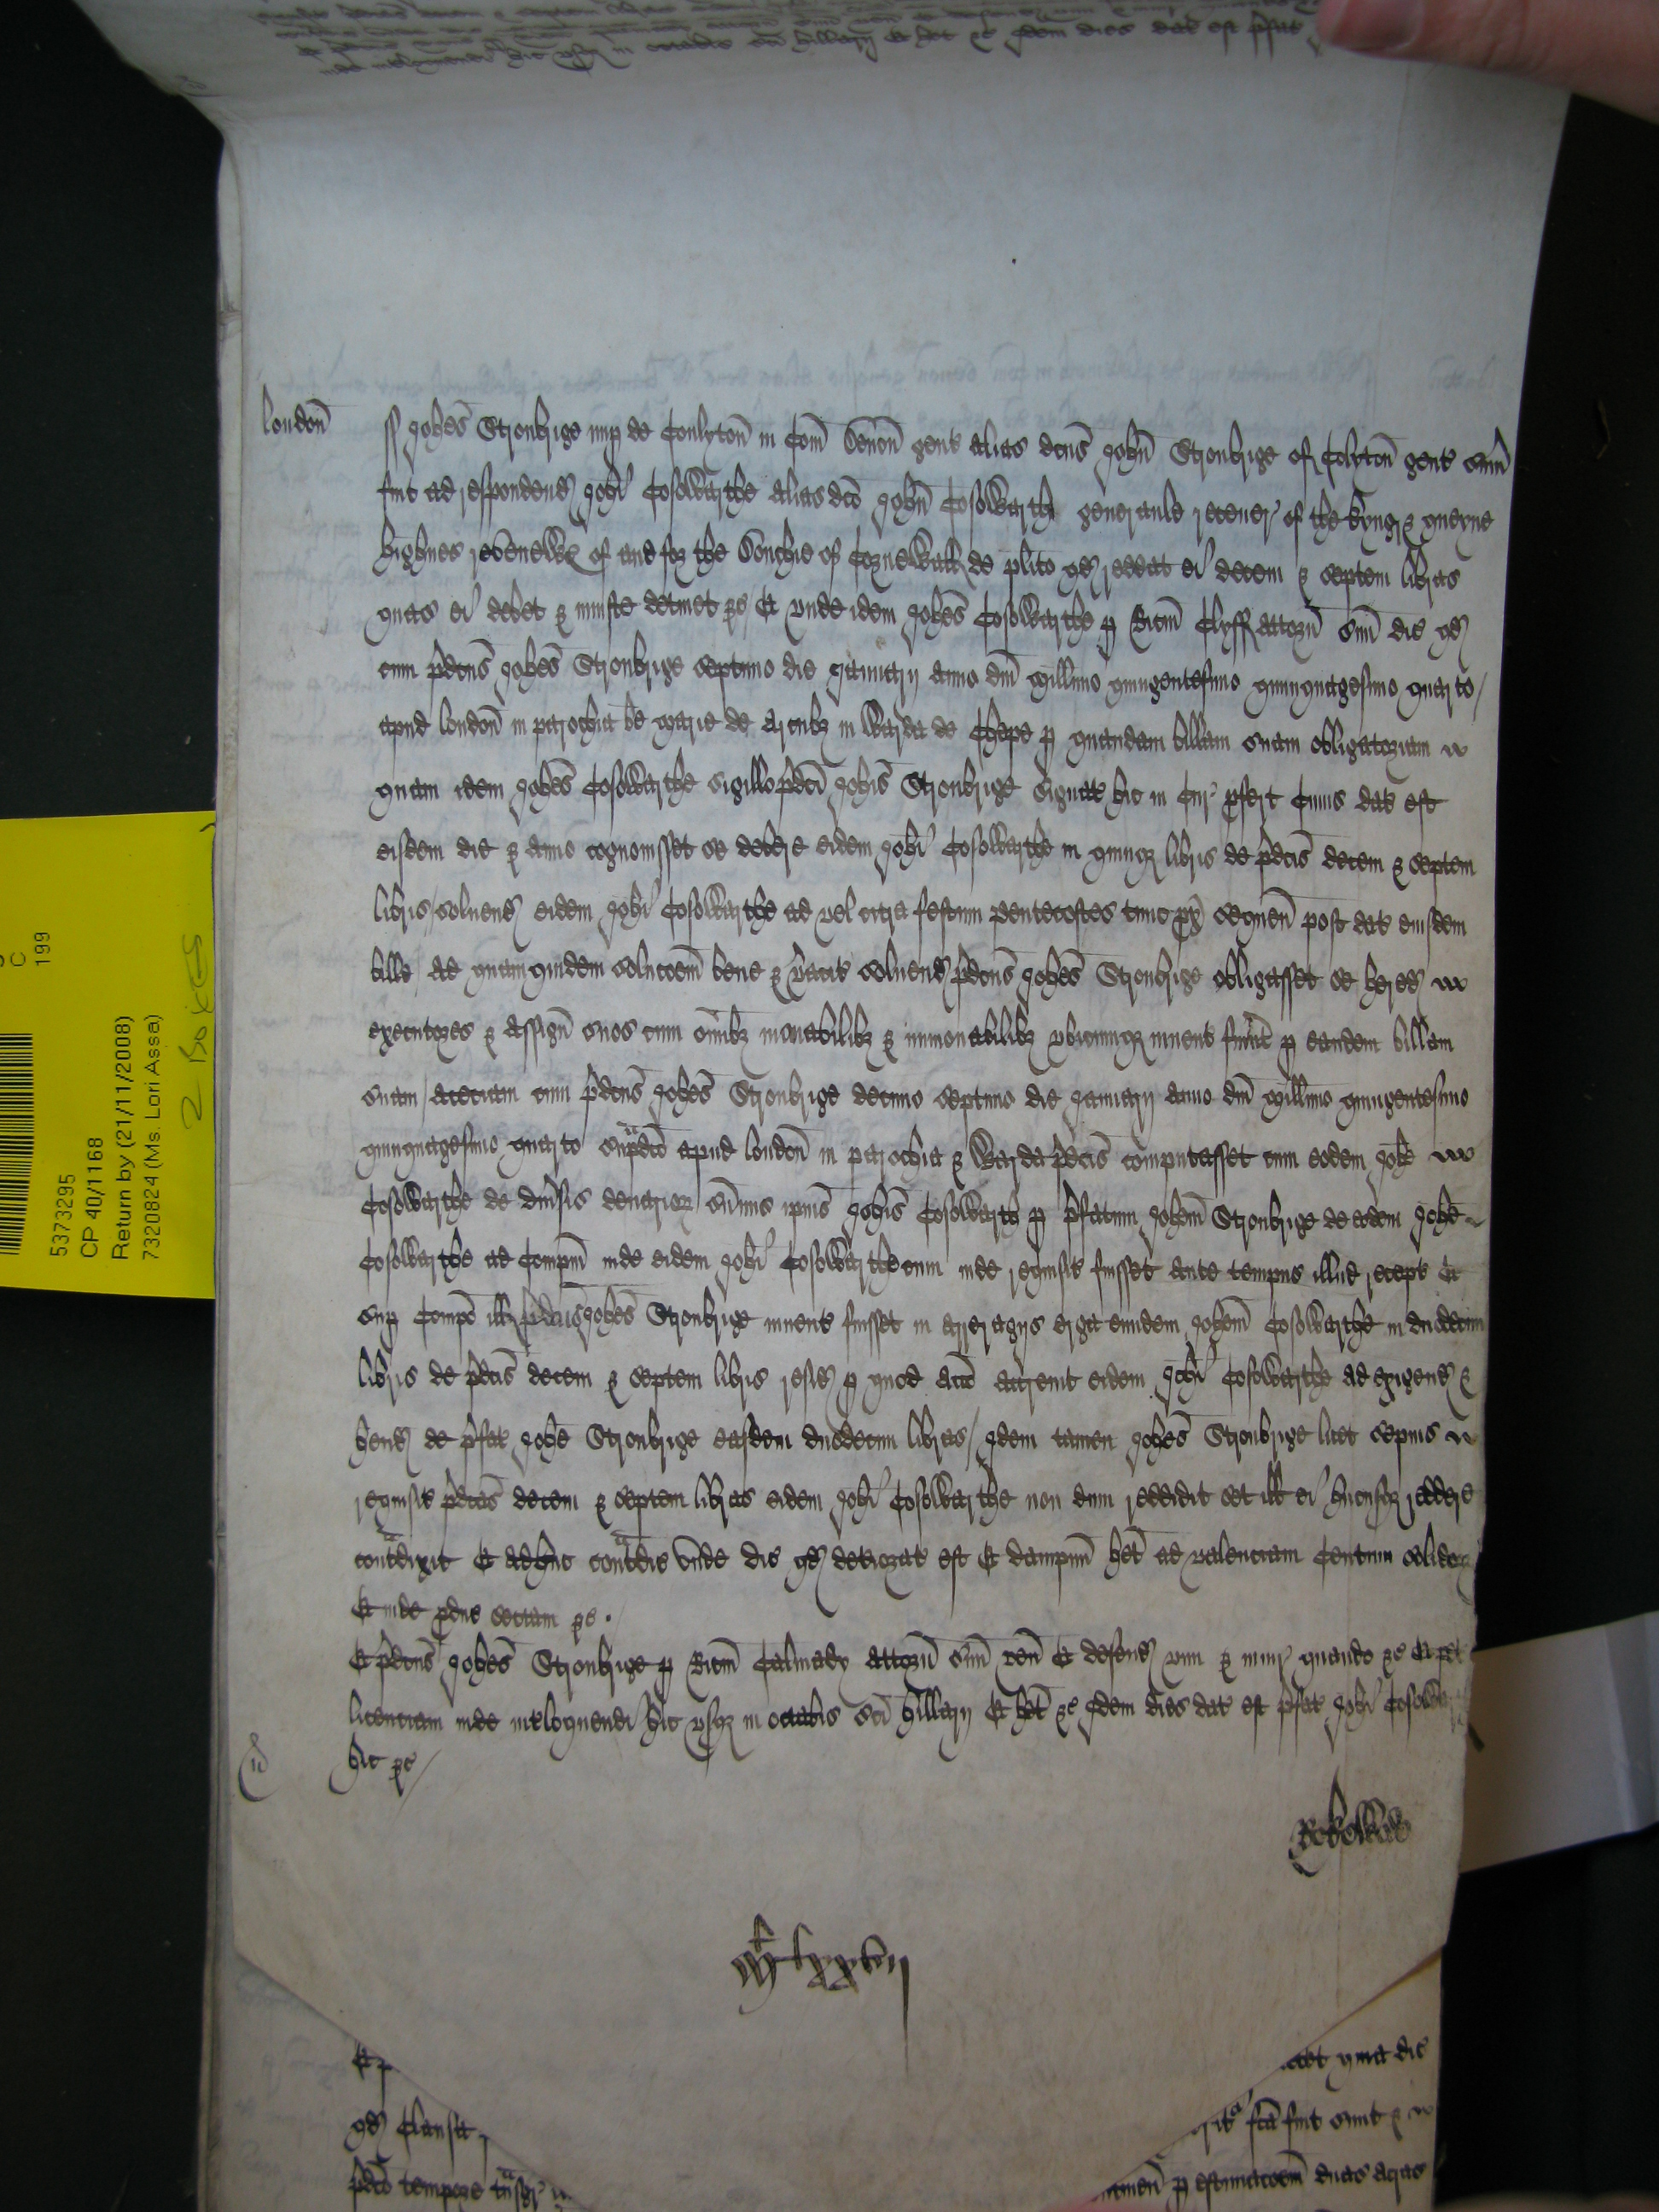 London ss Johēs Strowbrige nup de Conlyton in Com Devon gent alias dcūs John Strowbrige of Colyton gent sum
fuit ad respondend Johi Cosowarthe alias dco John Cosowarth generaule receuer of the kyng & queyne
highnes revenewx of and for the Duchie of Cornewall de plito qd reddat ei decem & septem libras
quas ei debet & iniuste detinet &c Et unde idem Johēs Cosowarthe p Ricm Clyff attorn suū dic qd
cum p̄dcūs Johēs Strowbrige septimo die Januarij anno dn̄i millimo quingentesimo quinquagesimo quarto /
apud London in parochia bē Marie de Arcubz in Warda de Chepe p quandam billam suam obligatoriam
quam idem Johēs Cosowarthe sigillo p̄dci Johis Strowbrige signat hic in Cur pfert Cuius dat est
eisdem die & anno cognouisset se debere eidem Johi Cosowarthe in quinqz libris de p̄dcis decem & septem
libris / soluend eidem Johi Cosowarthe ad vel citra festum Pentecostes tunc px sequen post dat eiusdem
bille ad quamquidem solucoem bene & fidelit soluend p̄dcūs Johēs Strowbrige obligasset se hered
executores & assign suos cum omibz mouabilibz & immouabilibz ubicumqz inuent fuerint p eandem billam
suam / acetiam cum p̄dcūs Johēs Strowbrige decimo septimo die Januarij anno dn̄i millimo quingentesimo
quinquagesimo quarto sup̄dco apud London in parochia & Warda p̄dcis computasset cum eodem Johe
Cosowarthe de diu̇sis denarior summis ipius Johis Cosowarth p p̄fatum Johem Strowbrige de eodem Johe
Cosowarthe ad Compm̄ inde eidem Johi Cosowarthe cum inde requisit fuisset ante tempus illud recept Et
sup Compo ill p̄dcūs Johēs Strowbrige inuent fuisset in arreragijs erga eundem Johem Cosowarthe in duodecim
libris de p̄dcis decem & septem libris resid p quod acco accreuit eidem Johi Cosowarthe ad exigend &
hend de p̄fat Johe Strowbrige easdem duodecim libras / Idem tamen Johēs Strowbrige licet sepius
requisit p̄dcas decem & septem libras eidem Johi Cosowarthe non dum reddidit set ill ei hucusqz reddere
contᵃdixit Et adhuc contᵃdic unde dic qd deteriorat est Et dampnū het ad valenciam Centum solidor
Et inde pduc sectam &c .
Et p̄dcūs Johēs Strowbrige p Ricm Calmady attorn suū ven Et defend vim & iniur quando &c Et pet
licenciam inde int̄loquendi hic usqz in octabis sci Hillarij Et het &c Idem dies dat est p̄fat Johi Cosowar
hic &c /
mˡ lxxvij
qd Clausa
p̄dco tempore
fca fuit sunt &
p estimacoem duas acras
5373295
CP 40/1168
Return by (21/11/2008)
7320824 (Ms. Lori Assa)
C
199
2 boxes